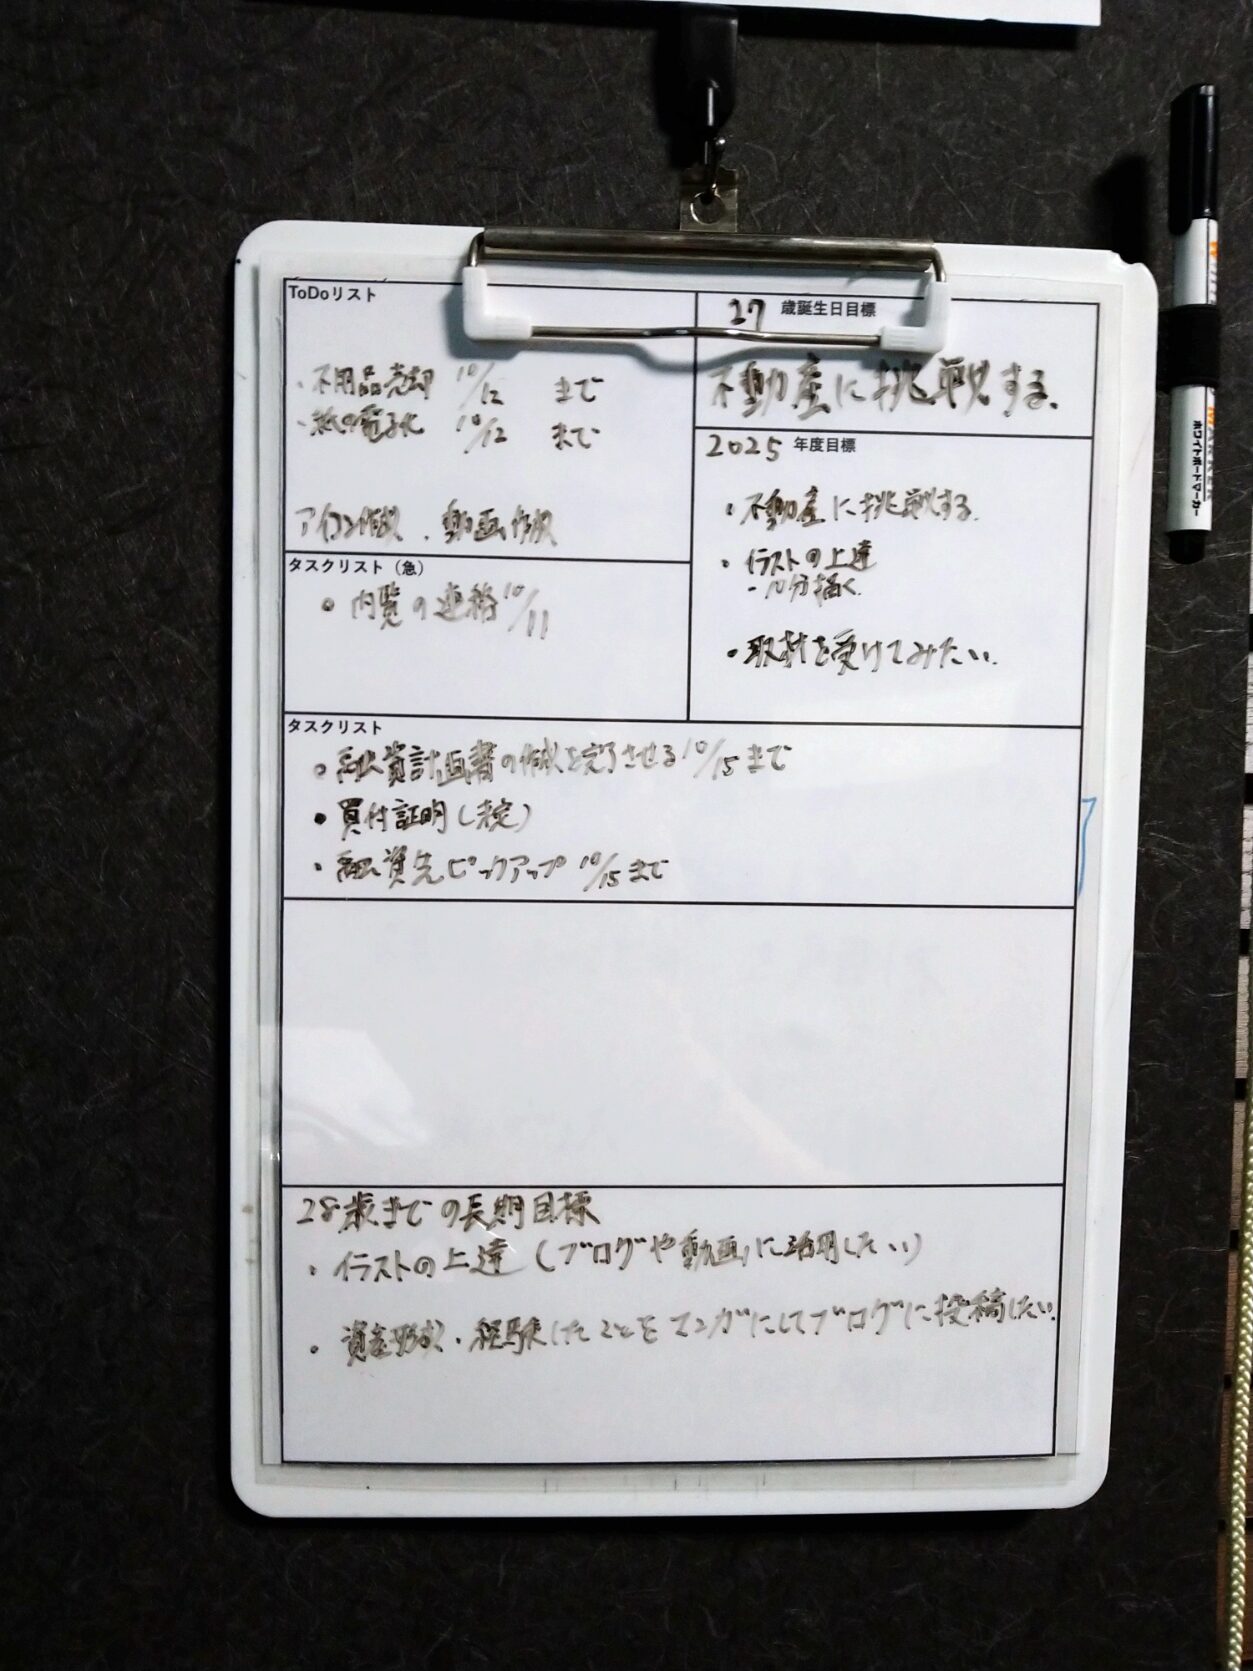 ToDoリスト
・不用品売却 10/12 まで
・紙の電子化 10/12 まで
アイコン作成、動画作成
タスクリスト（急）
・内覧の連絡 10/11
27 歳誕生日目標
不動産に挑戦する。
2025 年度目標
・不動産に挑戦する。
・イラストの上達
- 10分描く
・取材を受けてみたい。
タスクリスト
・融資計画書の作成を完了させる 10/15 まで
・買付証明（未定）
・融資先ピックアップ 10/15 まで
28歳までの長期目標
・イラストの上達（ブログや動画に活用したい）
・資産形成・経験したことをマンガにしてブログに投稿したい。
ホワイトボードマーカー